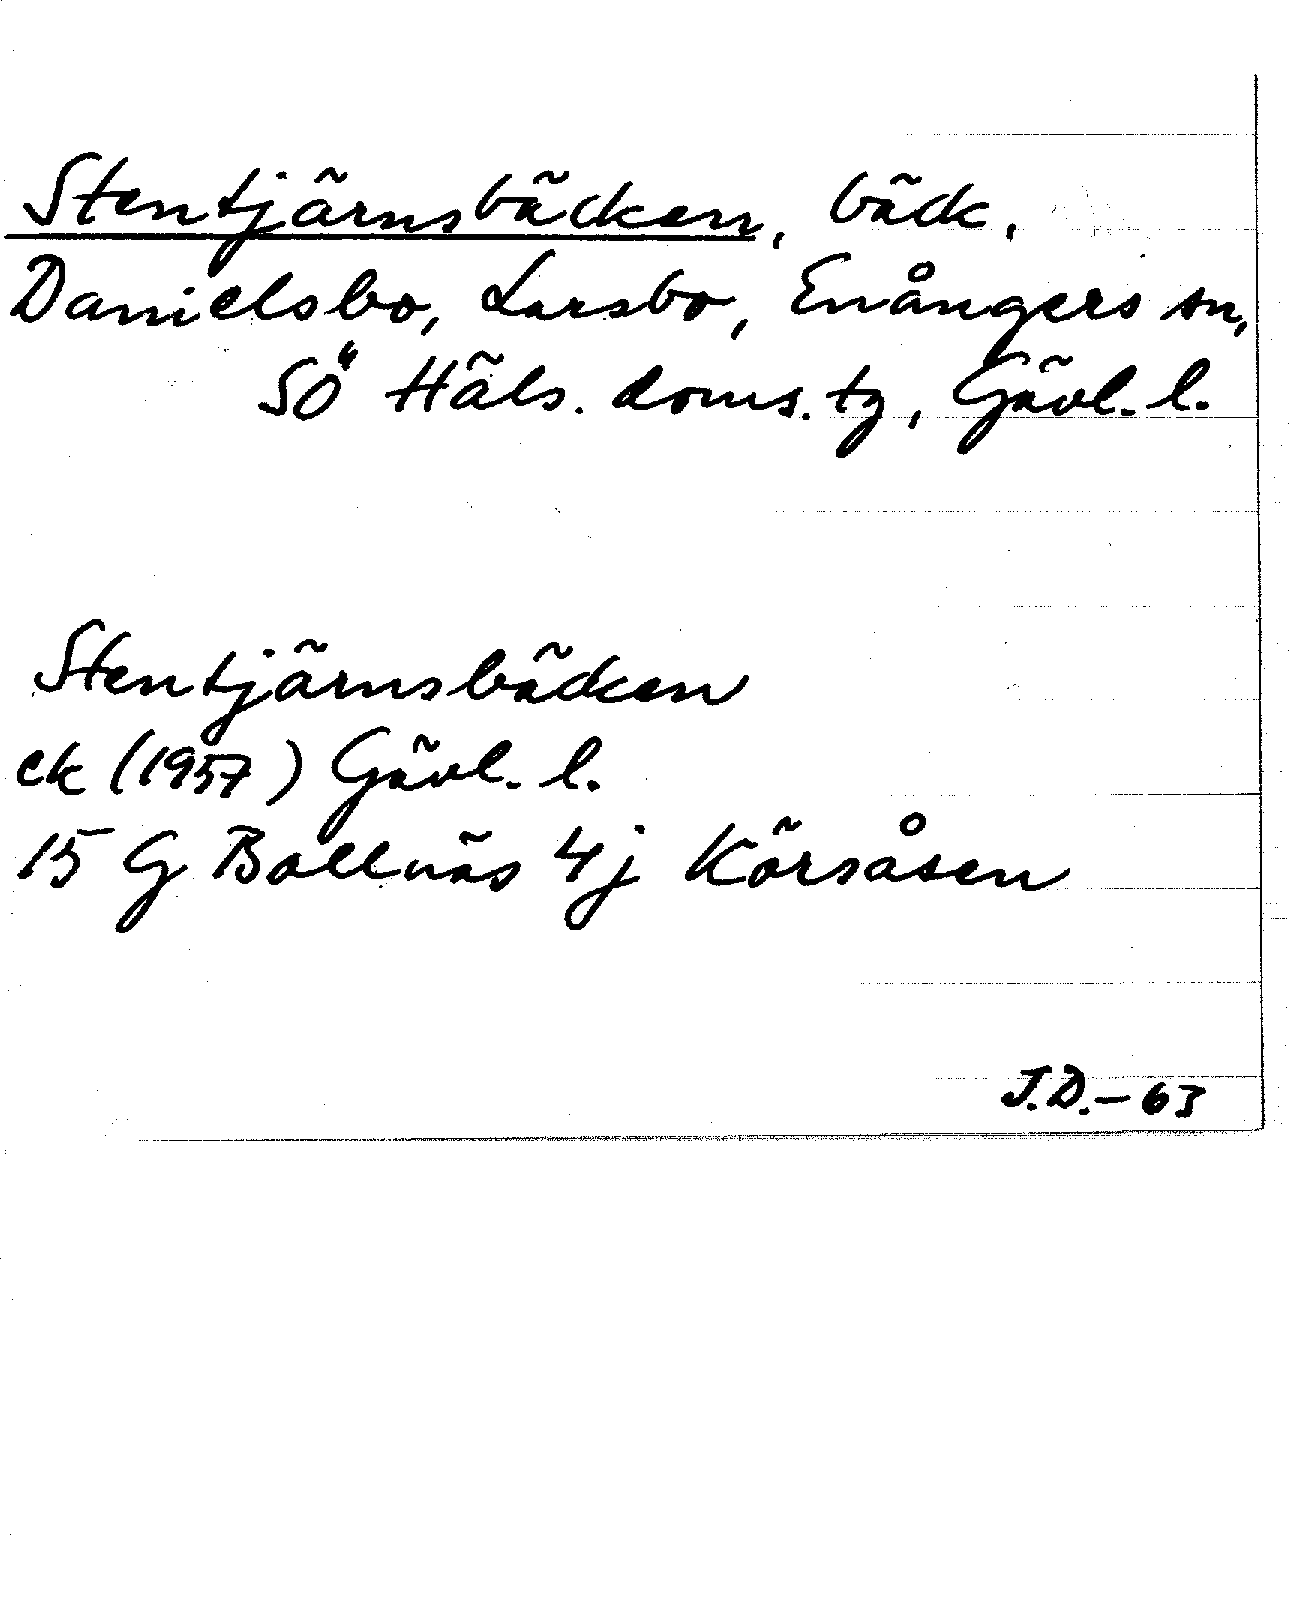 Stentjärnsbäcken, bäck,
Danielsbo, Larsbo, Enångers sn,
SÖ Häls. doms. tg, Gävl. l.
Stentjärnsbäcken
ek (1957) Gävl. l.
15 G Bollnäs 4j Körsåsen
J.D.-63